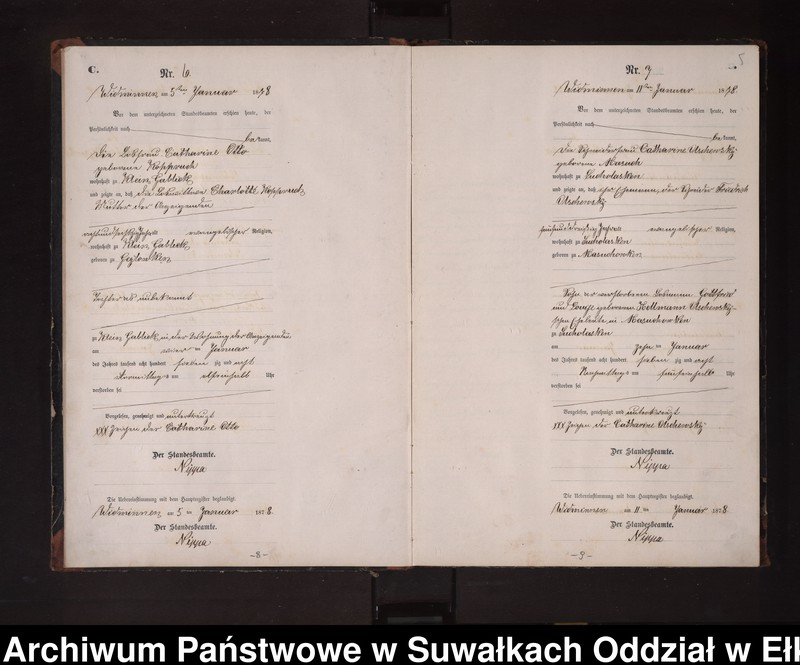 C.
Nr. 6.
Widminnen am 5ten Januar 1878
Vor dem unterzeichneten Standesbeamten erschien heute, der
Persönlichkeit nach
bekannt,
die Losfrau Catharine Otto
geborene Koppruch
wohnhaft zu Klein Gablick
und zeigte an, daß die Losmutter Charlotte Koppruch,
Mutter der Anzeigenden
Jahre evangelischer Religion,
wohnhaft zu Klein Gablick
geboren zu
Tochter als unbekannt
zu Klein Gablick, in der Wohnung der Anzeigenden
am vier ten Januar
des Jahres tausend acht hundert sieben zig und acht
Vormittags um Uhr
verstorben sei
Vorgelesen, genehmigt und unterkreuzt
XXX Zeichen der Catharine Otto
Der Standesbeamte.
Nippa
Die Uebereinstimmung mit dem Hauptregister beglaubigt.
Widminnen am 5 ten Januar 1878.
Der Standesbeamte.
Nippa
-8-
5
Nr. 7
Widminnen am 11ten Januar 1878.
Vor dem unterzeichneten Standesbeamten erschien heute, der
Persönlichkeit nach
bekannt,
die Schneiderfrau Catharine Olschewsky
geborene Masuch
wohnhaft zu Sucholasken
und zeigte an, daß ihr Ehemann, der Schneider Friedrich
Olschewsky
fünfunddreißig Jahre evangelischer Religion,
wohnhaft zu Sucholasken
geboren zu Masuchowken
Sohn der verstorbenen Losmann Gottfried
und Louise geborenen Hollmann Olschewsky-
schen Eheleute in Masuchowken
zu Sucholasken
am zehn ten Januar
des Jahres tausend acht hundert sieben zig und acht
Nachmittags um fünfeinhalb Uhr
verstorben sei
Vorgelesen, genehmigt und unterkreuzt
XXX Zeichen der Catharine Olschewsky
Der Standesbeamte.
Nippa
Die Uebereinstimmung mit dem Hauptregister beglaubigt.
Widminnen am 11 ten Januar 1878
Der Standesbeamte.
Nippa
-9-
Archiwum Państwowe w Suwałkach Oddział w Ełk